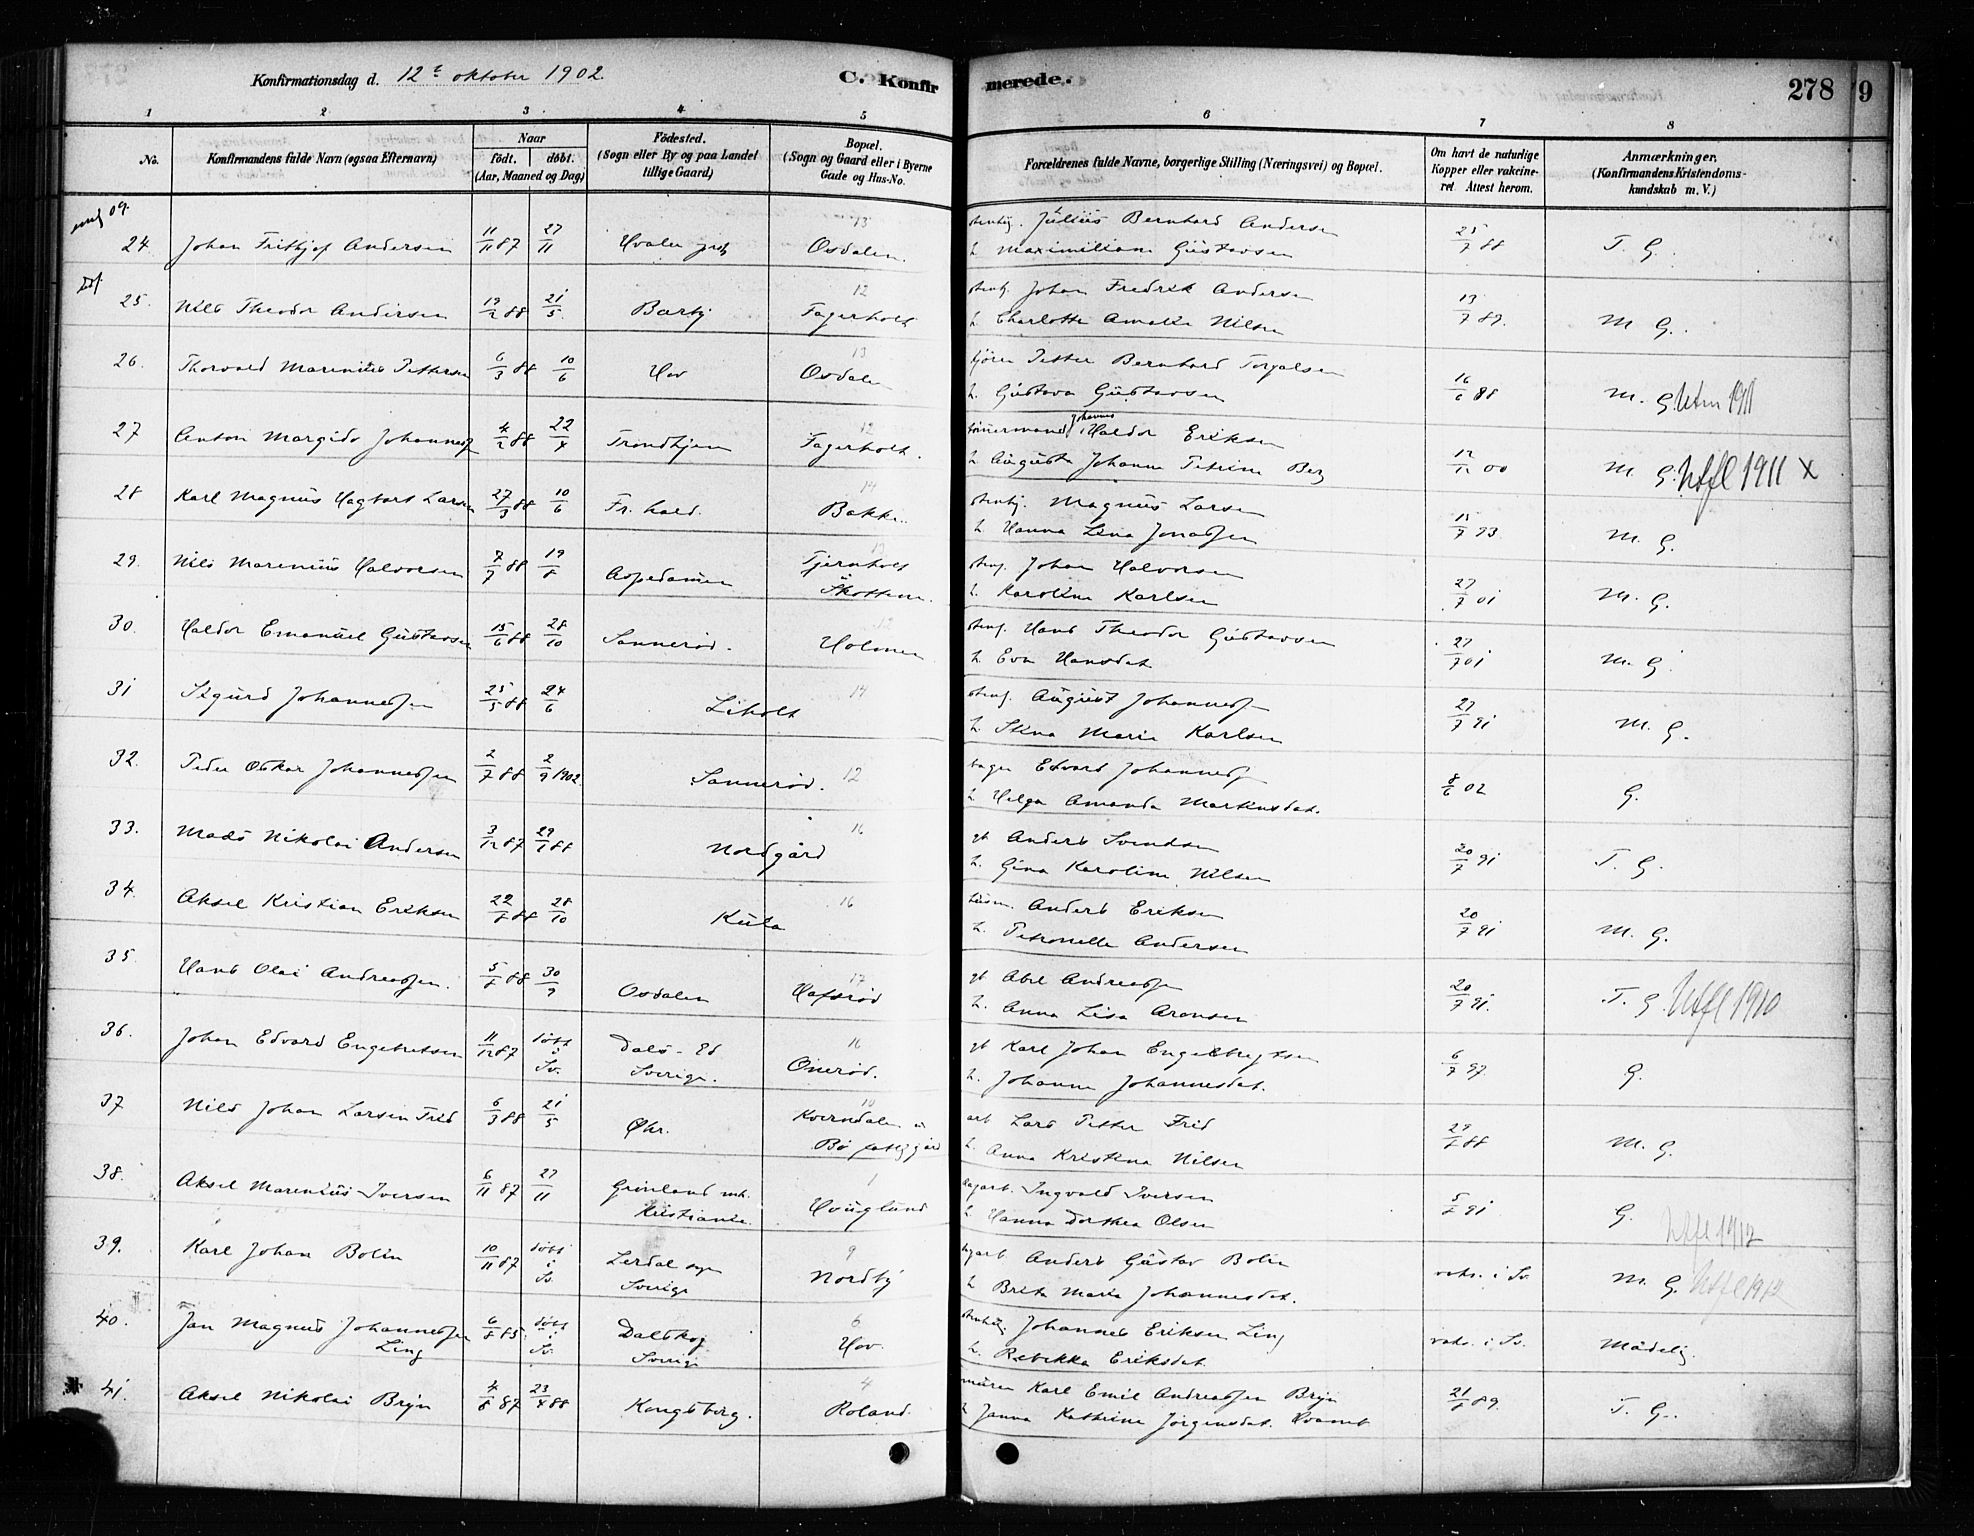 Konfirmationsdag d. 12t oktober 1902.
C. Konfirmerede.
278
9
1 2 3 4 5 6 7 8
No.
Konfirmandens fulde Navn (ogsaa Efternavn)
Naar
födt. döbt.
(Aar, Maaned og Dag)
Födested.
(Sogn eller By og paa Landet
tillige Gaard)
Bopæl.
(Sogn og Gaard eller i Byerne
Gade og Hus-No.
Forældrenes fulde Navne, borgerlige Stilling (Næringsvei) og Bopæl.
Om havt de naturlige
Kopper eller vakcine-
ret. Attest herom.
Anmærkninger.
(Konfirmandens Kristendoms-
kundskab m. V.)
09.
13
24. Johan Frithjof Andersen 11/11 87 27/11 Hvaler Osdalen. Julius Bernhard Andersen 25/7 88 T. G.
h. Maximiliane Gustavsen
12
25. Nils Theodor Andersen 19/2 88 21/5 Barby Fagerholt Johan Fredrik Andersen 13/7 89. M G.
h. Charlotte Amalia Nilsen
13
26. Thorvald Marenius Pettersen 6/3 88 10/6 Hov Osdalen Petter Bernhard Torgalsen 16/6 88 M. G. Utm 1911
h. Gustava Gustavsen
12
27 Anton Margido Johannessen 4/2 88 22/4 Trondhjem Fagerholt. tömmermand Johannes Haldor Eriksen 12/12 00 M G. Utfl 1911 X
h. Augusta Johanna Petrine Berg
14
28 Karl Magnus Hagbart Larsen 27/3 88 10/6 Fr. hald. Bakke. Magnus Larsen 15/9 93 M. G.
h. Hanna Lena Jonassen
29. Nils Marenius Halvorsen 7/7 88 19/8 Aspedammen Tjernholt Johan Halvorsen 27/7 01 M. G.
Skotten. h. Karoline Karlsen
12
30. Haldor Emanuel Gustavsen 15/6 88 28/10 Sannerød. Holmen Hans Theodor Gustavsen 27/7 01 M. G.
h. Eva Hansdat.
14
31 Sigurd Johannessen 25/5 88 24/6 Liholt August Johannessen 27/7 91 M. G.
h. Stina Marie Karlsen
32. Peder Oskar Johannessen 2/7 88 2/9 1902. Sannerød. 12 Edvard Johannessen 8/6 02 G.
h. Helga Amanda Markusdat.
16
33. Mads Nikolai Andersen 3/12 87 29/1 88 Nordgård gb Anders Svendsen 20/7 91 T. G.
h. Gina Karoline Nilsen
16
34. Aksel Kristian Eriksen 22/8 88 28/10 Kula husm. Anders Eriksen 20/7 91 M. G.
h. Petronelle Andersen
17
35. Hans Olai Andreassen. 5/8 88 30/9 Osdalen Hafsrød gb Abel Andreassen 20/7 91. T. G. Utfl 1910
h. Anna Lisa Aronsen
16
36. Johan Edvard Engebretsen 11/12 87 döbt i Sv. Dals-Ed Sverige. Onerød. gb Karl Johan Engelbrektsen 6/7 97. G.
h. Johanna Johannesdat.
10
37 Nils Johan Larsen Frid 6/3 88 21/5 Øhr. Kverndalen Bø fattiggård arb Lars Petter Frid 29/8 88 M. G.
h. Anna Kristina Nilsen
1
38. Aksel Marenius Iversen 6/11 87 27/11 Grönland mh. Kristiania. Hougland Ingvald Iversen 5/8 91 G.
h. Hanna Dorthea Olsen Utfl 1912
9
39. Karl Johan Bolin 10/11 87 döbt i Sv. Lerdal sogn Sverige Nordby Anders Gustav Bolin vaks. i Sv. M. G. Utfl 1912
h. Brita Maria Johannesdat.
6
40. Jan Magnus Johannessen Ling 6/8 85. döbt i Sv. Dalskog Sverige Hov. Johannes Eriksen Ling vaks. i Sv. Mådelig
h. Rebekka Eriksdat.
4
41. Aksel Nikolai Bryn 4/8 87 23/4 88 Kongsberg. Roland. murer Karl Emil Andreassen Bryn 21/6 89. T. G.
h. Janna Kathrine Jørgensdat. Hvamb